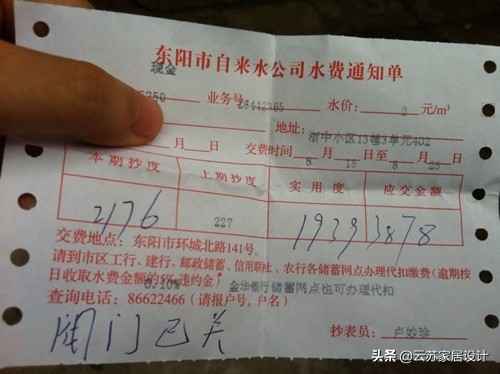 东阳市自来水公司水费通知单
现金
5250 业务号 26442365 水价: 2 元/m³
地址: 湖中小区13幢3单元402
月 日 交费时间 8 月 15 日至 8 月 25 日
本期抄度 上期抄度 实用度 应交金额
2176 227 1939 3878
交费地点: 东阳市环城北路141号。
请到市区工行、建行、邮政储蓄、信用联社、农行各储蓄网点办理代扣缴费(逾期按
日收取水费金额的5‰违约金) 金华银行储蓄网点也可办理代扣
查询电话: 86622466 (请报户号,户名)
闸门已关
抄表员:
头条 @云苏家居设计